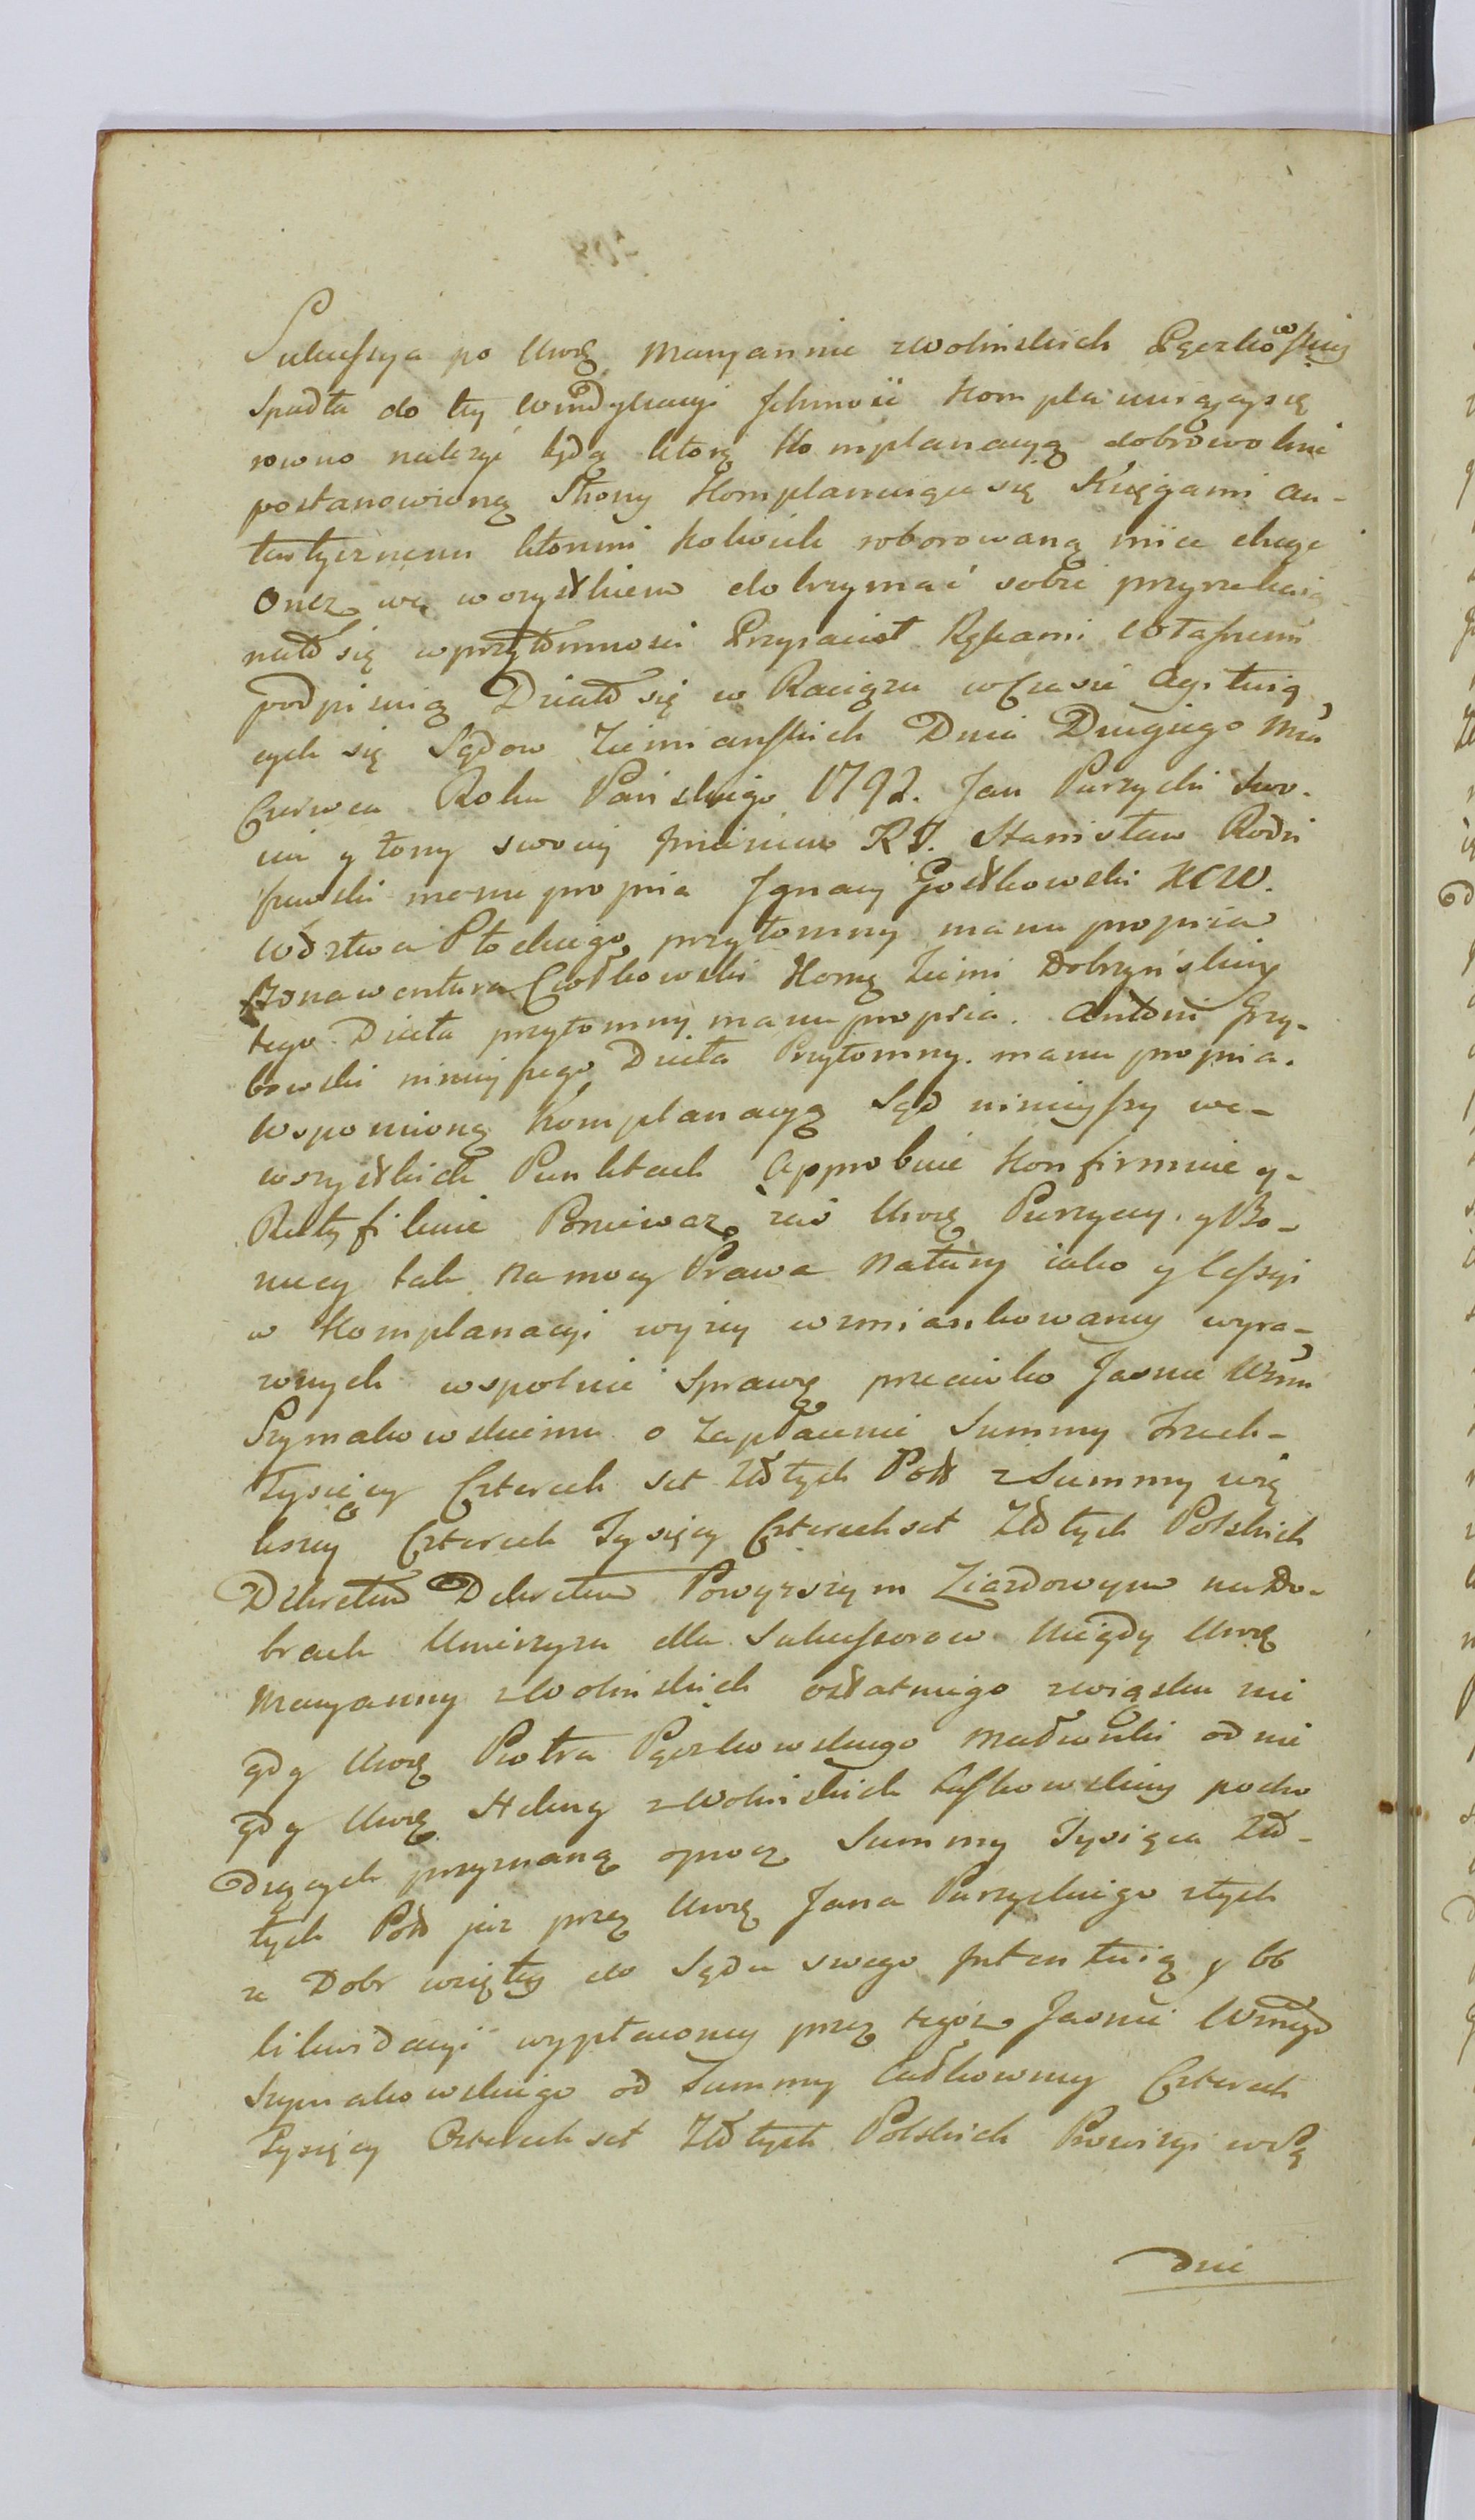 Sukcessya po Urog Maryannie z Wolinskich Pęczkowskiey
spadła do tey windykacyi Ichmośći Komplanuiącysię
rowno należyć będą ktorą Komplanacyą dobrowolnie
postanowioną Strony Komplanuiące się Xięgami au-
tentycznemi ktoremi kolwiek roborowaną mieć chcące
Onęż we wszystkiem dotrzymać sobie przyrzekaią
nato się wprzytomności Przyiacioł Rękami własnemi
podpisuią Działo się w Raciążu wczasie agituią
cych się Sądow Ziemianskich Dnia Drugiego Mca
Czerwca Roku Pańskiego 1792. Jan Purzycki swo-
im y żony swoiey imieniem RS. Stanisław Rości
szewski manu propria Ignacy Gostkowski KCW.
Wdztwa Płockiego przytomny manu propria
Bonawentura Ciołkowski Komę Ziemi Dobrzyńskiey
tego Dzieła przytomny manu propria. Antoni Grzy-
bowski ninieyszego Dzieła Przytomny. manu propria.
Wspomnioną Komplanacyą Sąd ninieyszy we-
wszystkich Punktach Approbuie Konfirmuie y-
Ratyfikuie Ponieważ zaś Urog Purzyccy y Bo-
niccy tak na mocy Prawa Natury iako y Cessyi
w Komplanacyi wyżey wzmiankowaney wyra-
żonych wspolnie Sprawę przeciwko Jasnie Wmu
Szymakowskiemu o Zapłacenie Summy Trzech-
Tysięcy Czterech set Złotych Pols z Summy wię
kszey Czterech Tysięcy Czterechset Złotych Polskich
Dekretem Dekretem Powyższym Ziazdowym na Do-
brach Unierzyżu dla Sukcessorow Niegdy Urog
Maryanny z Wolinskich ostatniego związku nie
gdy Urog Piotra Pęczkowskiego Małżonki od nie
gdy Urog Heleny z Wolinskich Laskowskiey pocho
dzących przyznaną oprocz Summy Tysiąca Zło-
tych Pols już przez Urog Jana Purzyckiego ztych
ze Dobr wziętey do Sądu swego Intentuią y ob
likwidacyi wypłaconey przez tegoż Jasnie Wmgo
Szymakowskiego od Summy Całkowney Czterech
Tysięcy Czterechset Złotych Polskich Prowizyi w Są
dzie